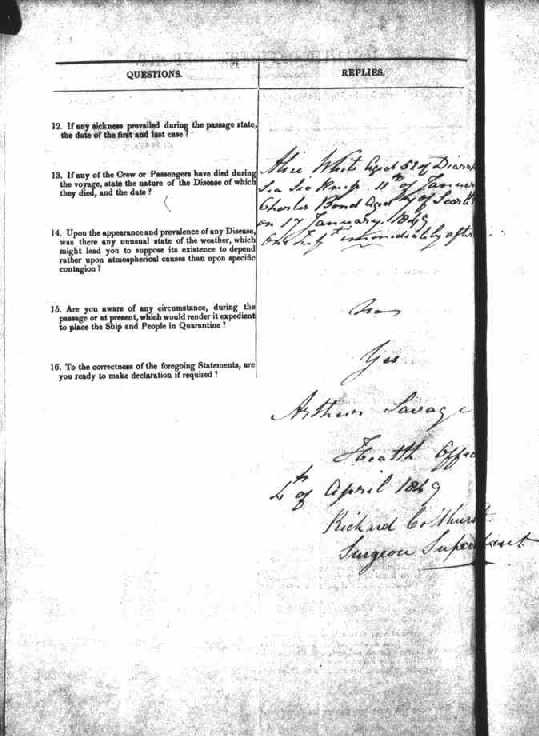 QUESTIONS.
REPLIES.
12. If any sickness prevailed during the passage state,
the date of the first and last case ?
13. If any of the Crew or Passengers have died during
the voyage, state the nature of the Disease of which
they died, and the date ?
Alice White Aged 58 of
11th of
Charles Bond Aged of
on 17 January 1849
immediately after
14. Upon the appearance and prevalence of any Disease,
was there any unusual state of the weather, which
might lead you to suppose its existence to depend
rather upon atmospherical causes than upon specific
contagion ?
15. Are you aware of any circumstance, during the
passage or at present, which would render it expedient
to place the Ship and People in Quarantine ?
16. To the correctness of the foregoing Statements, are
you ready to make declaration if required ?
Yes
Arthur Savage
Health
4th of April 1849
Richard
Surgeon